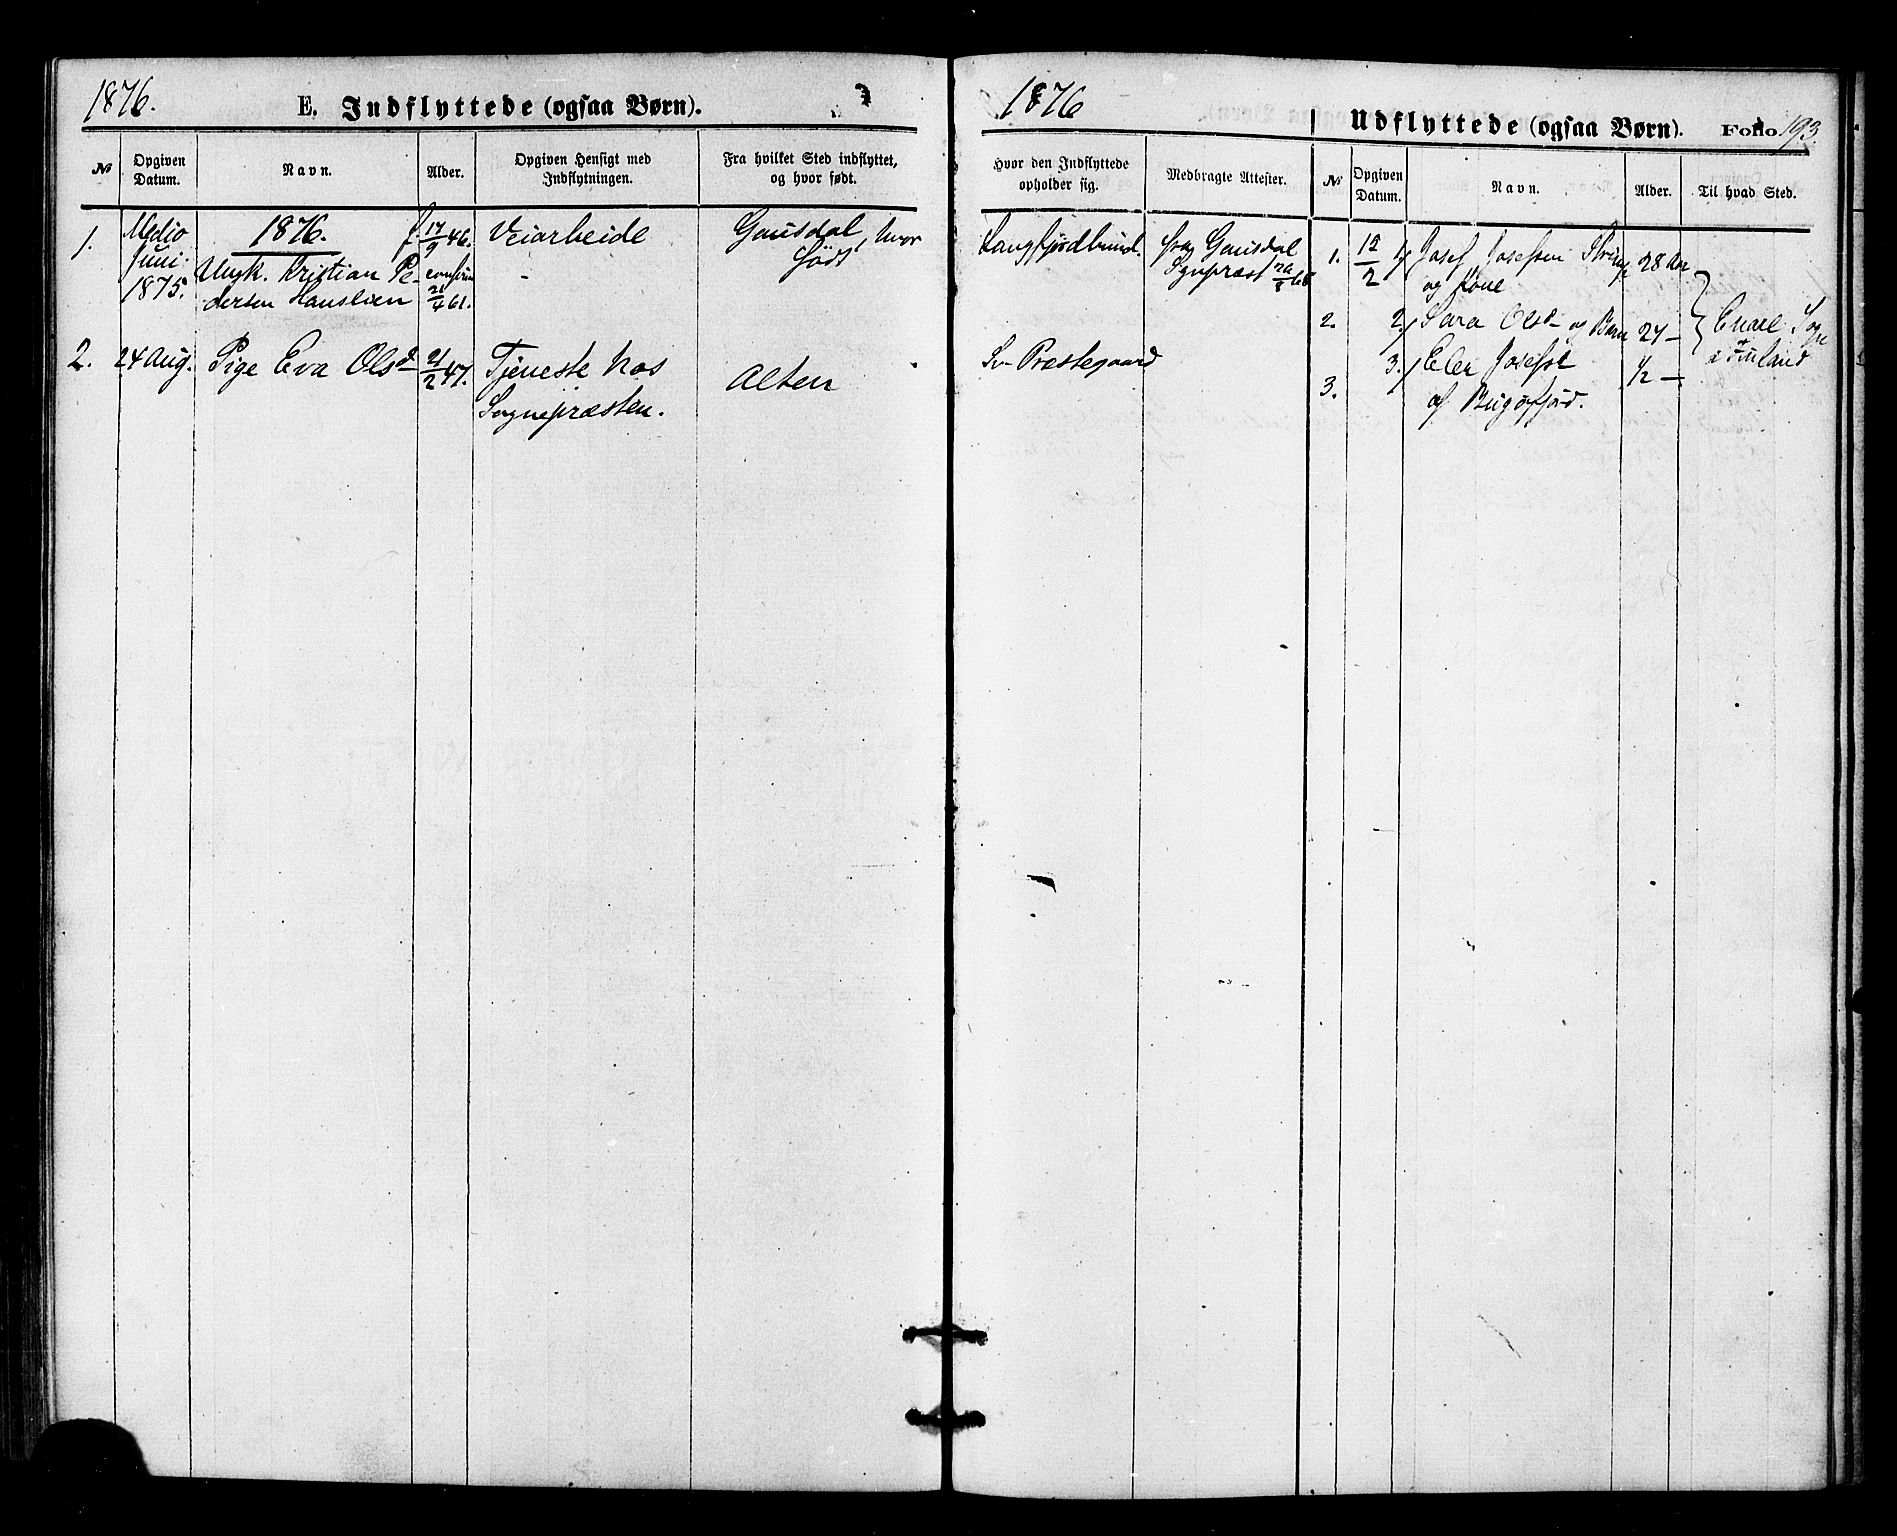 1876.
E. Indflyttede (ogsaa Børn).
№
Opgiven Datum.
Navn.
Alder.
Opgiven Hensigt med Indflytningen.
Fra hvilket Sted indflyttet, og hvor født.
1.
Medio
Juni
1875.
1876.
Ungk. Kristian Pe-
dersen Hauslien
f. 17/9 46.
/4 61.
Veiarbeide
Gausdal, hvor
født
2.
24 Aug.
Pige Eva Olsd
21/2 47.
Tjeneste hos
Sognepræsten.
Alten
1876
Udflyttede (ogsaa Børn).
Folio 193
Hvor den Indflyttede opholder sig.
Medbragte Attester.
№
Opgiven Datum.
Navn.
Alder.
Til hvad Sted.
Langfjordbund.
fra Gausdal
Sognepræst
Præstegaard
1.
12/2
1/
Josef Josefsen
28 Aar
og Kone
2.
2/
Sara Olsd og Barn
24 —
3.
3/
Elen Josefsd
1/2 —
af Bugøfjord.
Enare Sogn
i Finland